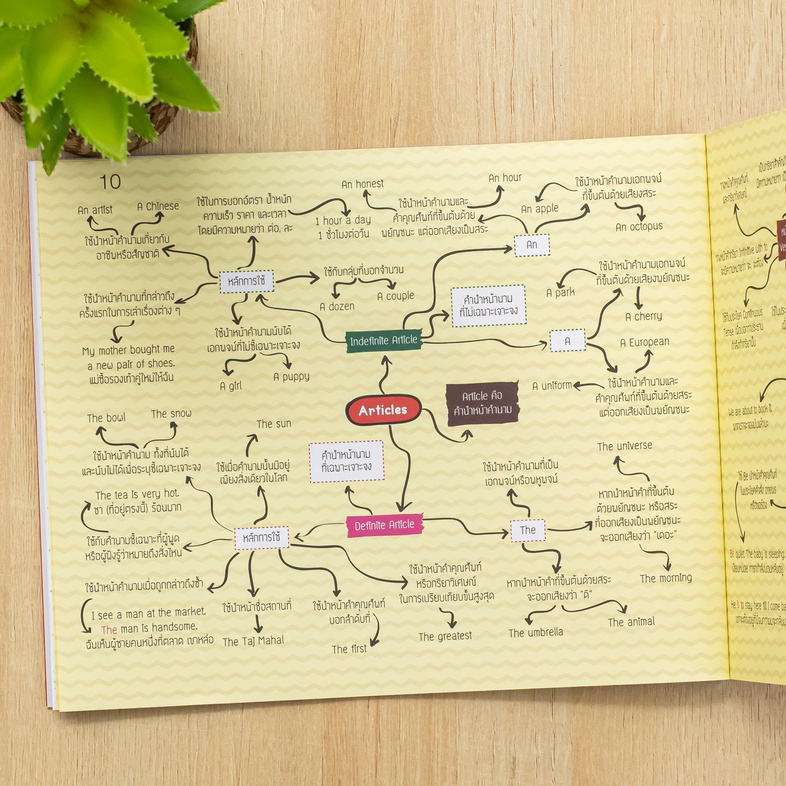 10
An artist
A Chinese
ใช้นำหน้าคำนามเกี่ยวกับ
อาชีพหรือสัญชาติ
ใช้ในการบอกอัตรา น้ำหนัก
ความเร็ว ราคา และเวลา
โดยมีความหมายว่า ต่อ, ละ
1 hour a day
1 ชั่วโมงต่อวัน
An honest
An hour
ใช้นำหน้าคำนามและ
คำคุณศัพท์ที่ขึ้นต้นด้วย
พยัญชนะ แต่ออกเสียงเป็นสระ
An apple
ใช้นำหน้าคำนามเอกพจน์
ที่ขึ้นต้นด้วยสระ
An octopus
An
หลักการใช้
ใช้กับกลุ่มที่บอกจำนวน
A dozen
A couple
ใช้นำหน้าคำนามที่กล่าวถึง
ครั้งแรกในการเล่าเรื่องต่าง ๆ
My mother bought me
a new pair of shoes.
แม่ซื้อรองเท้าคู่ใหม่ให้ฉัน
ใช้นำหน้าคำนามนับได้
เอกพจน์ที่ไม่ชี้เฉพาะเจาะจง
A girl
A puppy
Indefinite Article
คำนำหน้านาม
ที่ไม่เฉพาะเจาะจง
A
A park
ใช้นำหน้าคำนามเอกพจน์
ที่ขึ้นต้นด้วยเสียงพยัญชนะ
A cherry
A European
A uniform
ใช้นำหน้าคำนามและ
คำคุณศัพท์ที่ขึ้นต้นด้วยสระ
แต่ออกเสียงเป็นพยัญชนะ
Articles
Article คือ
คำนำหน้าคำนาม
The bowl
The snow
ใช้นำหน้าคำนาม ทั้งที่นับได้
และนับไม่ได้เพื่อระบุชี้เฉพาะเจาะจง
The sun
ใช้เมื่อคำนามนั้นมีอยู่
เพียงสิ่งเดียวในโลก
คำนำหน้านาม
ที่เฉพาะเจาะจง
The tea is very hot.
ชา (ที่อยู่ตรงนี้) ร้อนมาก
ใช้กับคำนามชี้เฉพาะที่ผู้พูด
หรือผู้ฟังรู้ว่าหมายถึงสิ่งไหน
หลักการใช้
Definite Article
The
ใช้นำหน้าคำนามที่เป็น
เอกพจน์หรือพหูพจน์
The universe
หากนำหน้าคำที่ขึ้นต้น
ด้วยพยัญชนะ หรือสระ
ที่ออกเสียงเป็นพยัญชนะ
จะออกเสียงว่า "เดอะ"
The morning
ใช้นำหน้าคำนามเมื่อถูกกล่าวถึงซ้ำ
I see a man at the market.
The man is handsome.
ฉันเห็นผู้ชายคนหนึ่งที่ตลาด เขาหล่อ
ใช้นำหน้าชื่อสถานที่
The Taj Mahal
ใช้นำหน้าคำคุณศัพท์
บอกลำดับที่
The first
ใช้นำหน้าคำคุณศัพท์
หรือกริยาวิเศษณ์
ในการเปรียบเทียบขั้นสูงสุด
The greatest
หากนำหน้าคำที่ขึ้นต้นด้วยสระ
จะออกเสียงว่า "ดิ"
The umbrella
The animal